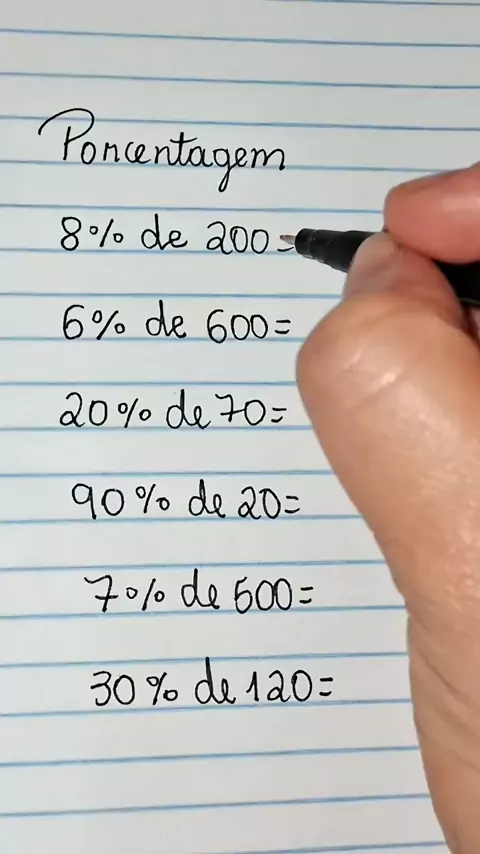 Porcentagem
8% de 200=
6% de 600=
20% de 70=
90% de 20=
7% de 500=
30% de 120=